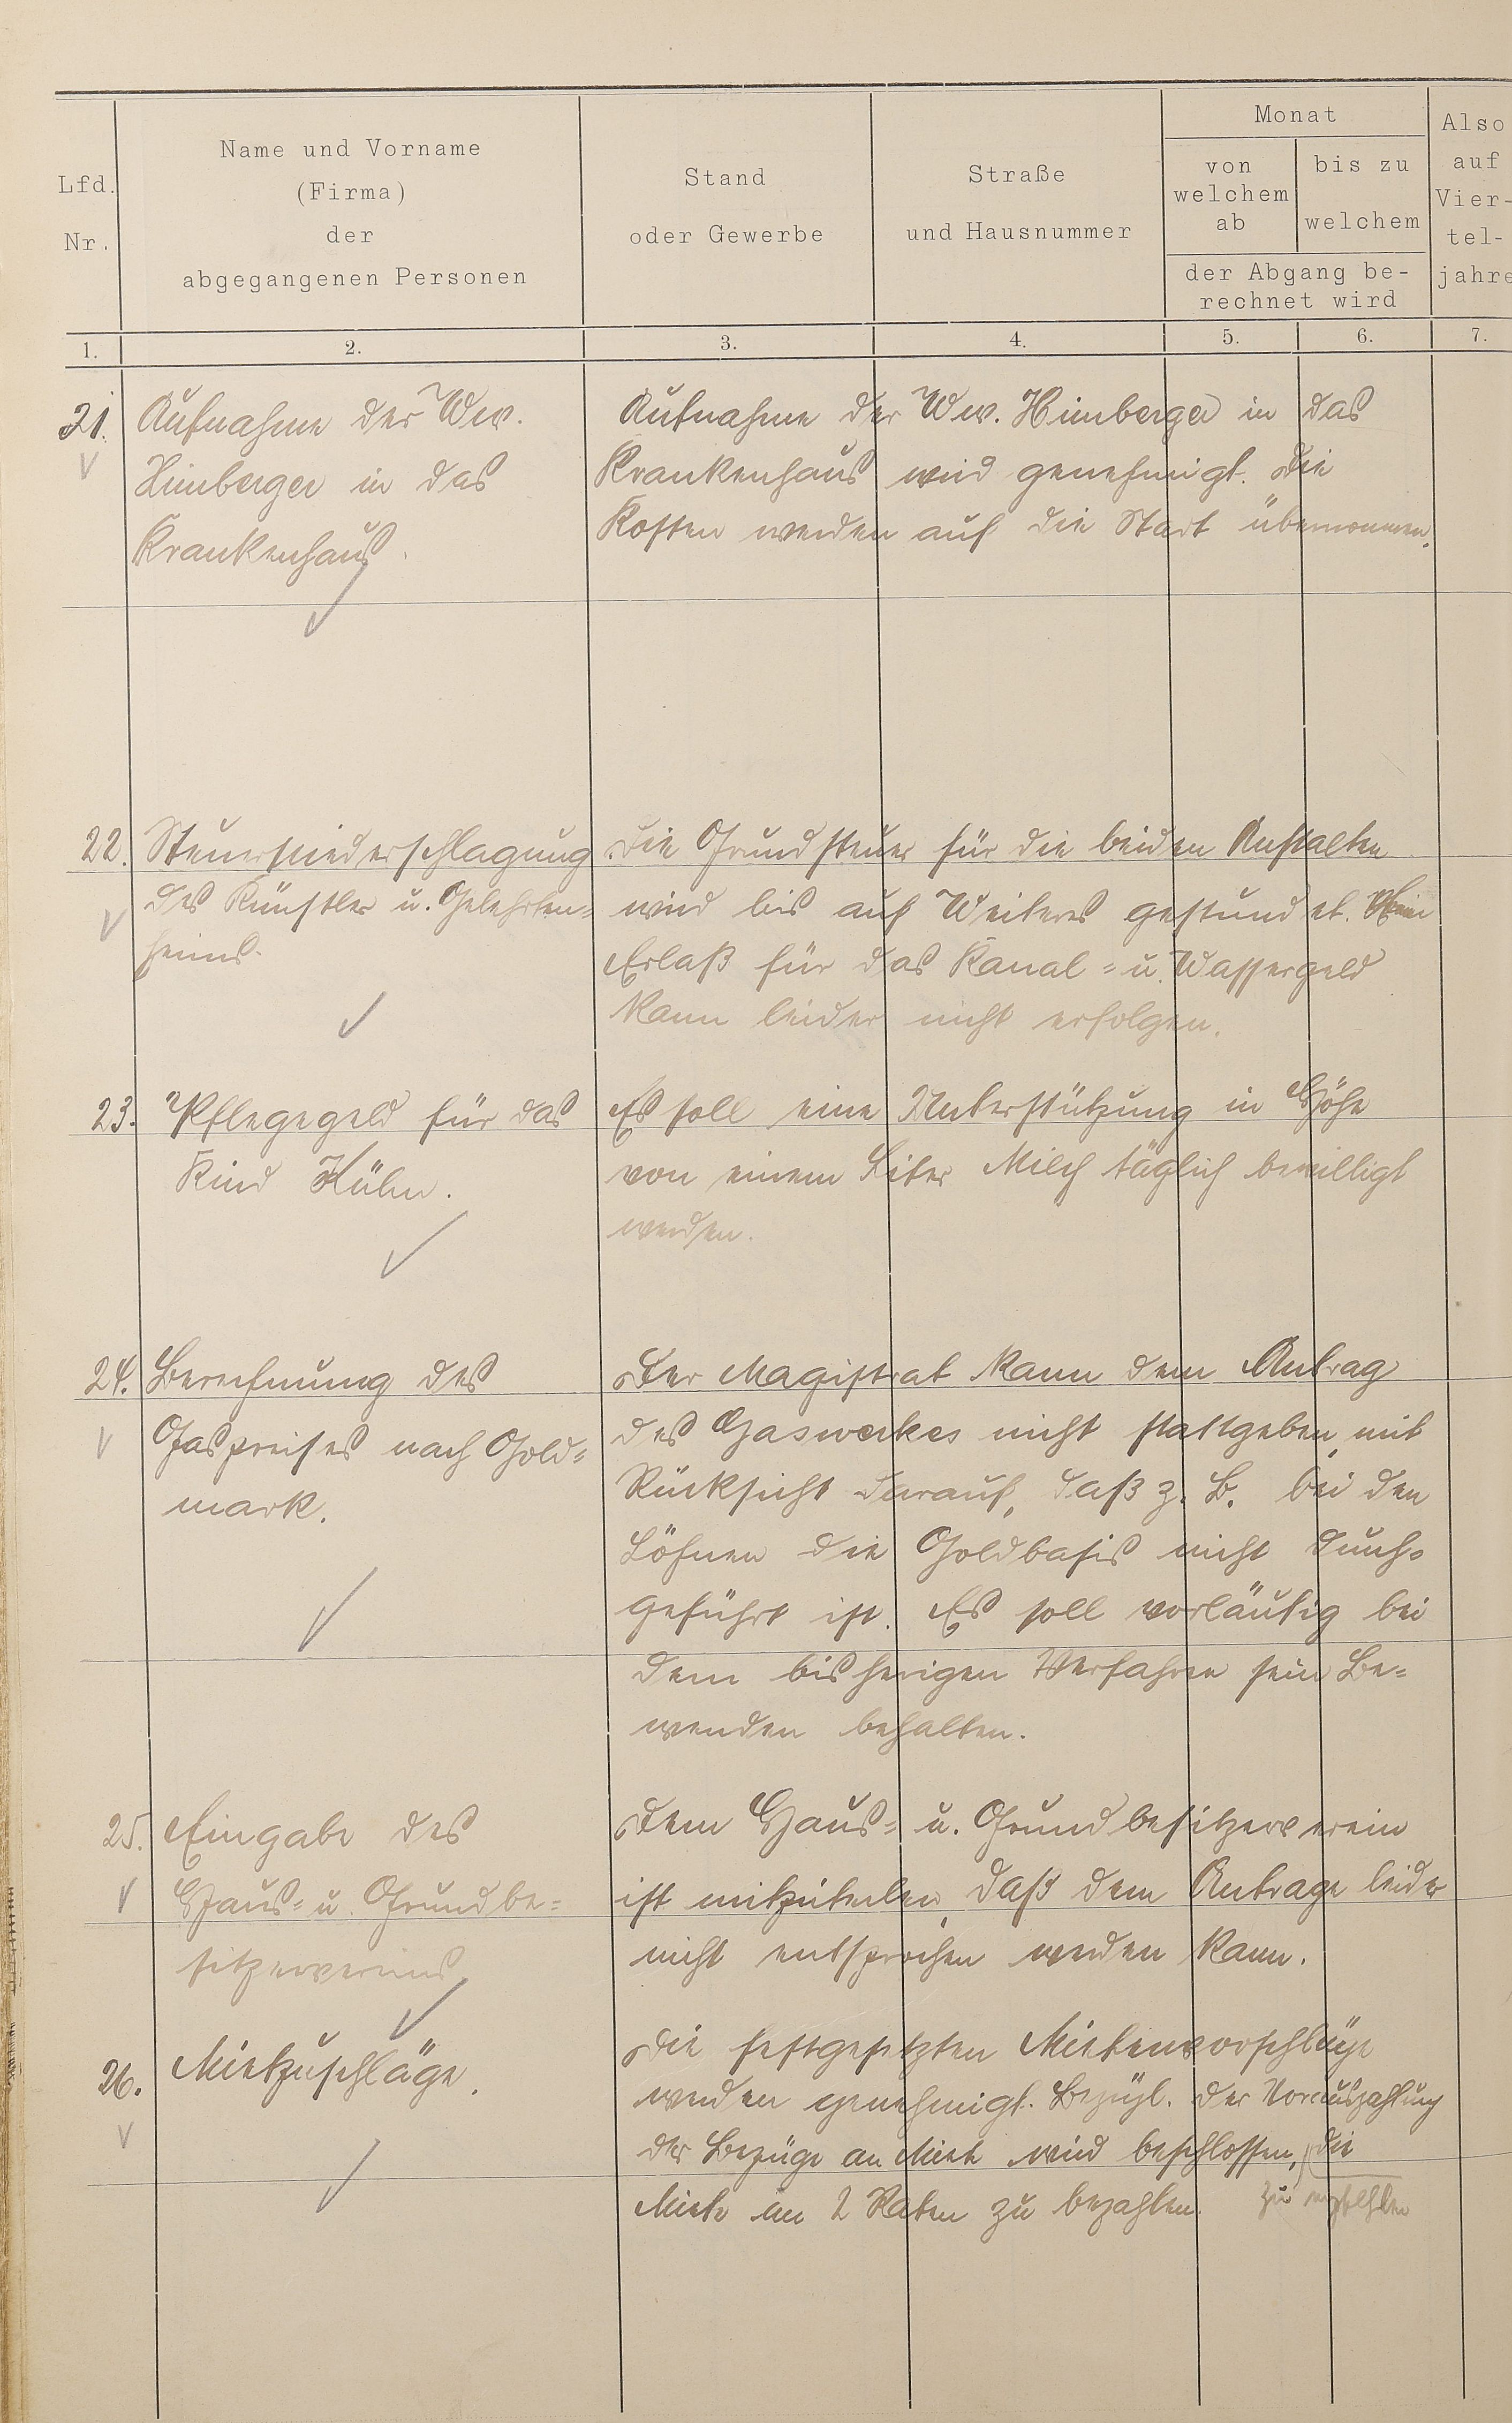 Lfd. Nr.
Name und Vorname
(Firma)
der
abgegangenen Personen
Stand
oder Gewerbe
Straße
und Hausnummer
Monat
von
welchem
ab
bis zu
welchem
der Abgang be-
rechnet wird
Also
auf
Vier-
tel-
jahre
1. 2. 3. 4. 5. 6. 7.
21. Aufnahme der Ww.
Himberger in das
Krankenhaus.
Aufnahme der Ww. Himberger in das
Krankenhaus wird genehmigt. Die
Kosten werden auf die Stadt übernommen.
22. Steuerniederschlagung
des Künstler u. Gelehrten-
heims.
Die Grundsteuer für die beiden Anstalten
wird bis auf Weiteres gestundet. Ein
Erlaß für das Kanal- u. Wassergeld
kann leider nicht erfolgen.
23. Pflegegeld für das
Kind Kühn.
Es soll eine Unterstützung in Höhe
von einem Liter Milch täglich bewilligt
werden.
24. Berechnung des
Gaspreises nach Gold-
mark.
Der Magistrat kann dem Antrag
des Gaswerkes nicht stattgeben, mit
Rücksicht darauf, daß z. B. bei den
Löhnen die Goldbasis nicht durch-
geführt ist. Es soll vorläufig bei
dem bisherigen Verfahren sein Be-
wenden behalten.
25. Eingabe des
Haus- u. Grundbe-
sitzervereins
Dem Haus- u. Grundbesitzerverein
ist mitzuteilen, daß dem Antrage leider
nicht entsprochen werden kann.
26. Mietzuschläge.
Die festgesetzten Mietenvorschläge
werden genehmigt. Bezügl. der Vorauszahlung
der Bezüge an Miete wird beschlossen, die
Miete in 2 Raten zu bezahlen. zu empfehlen